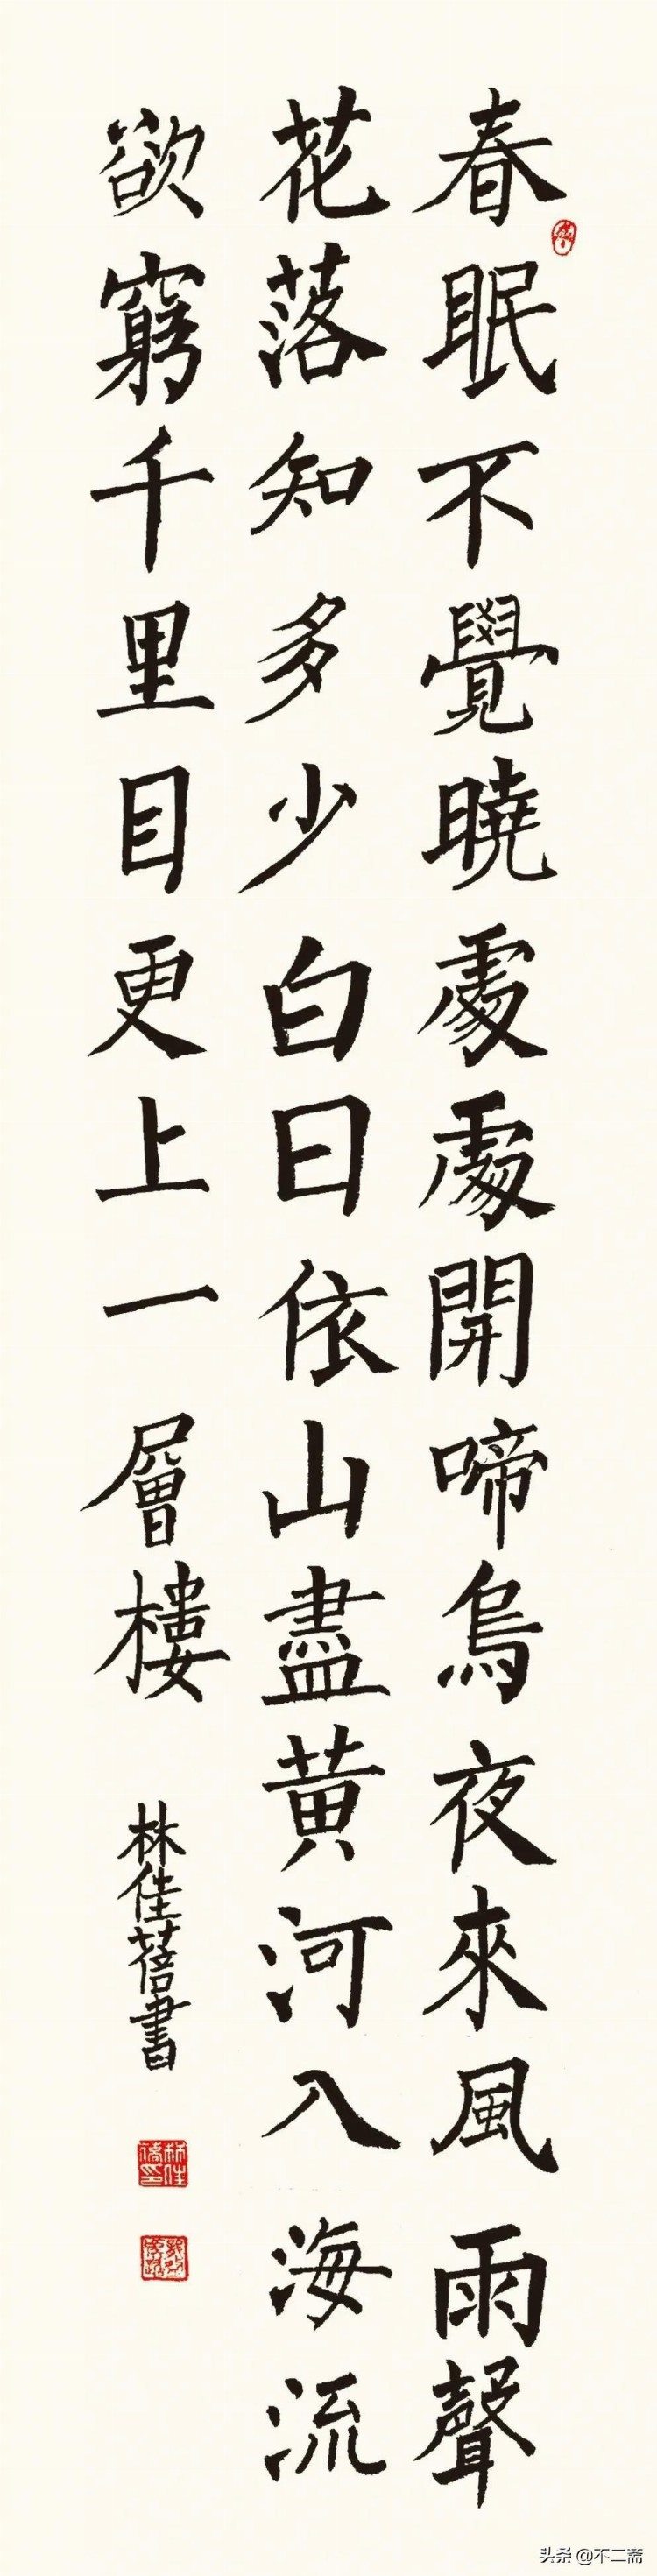 春眠不覺曉處處開啼烏夜來風雨聲
花落知多少白日依山盡黄河入海流
欲窮千里目更上一層樓
林佳蓓書
头条 @不二斋